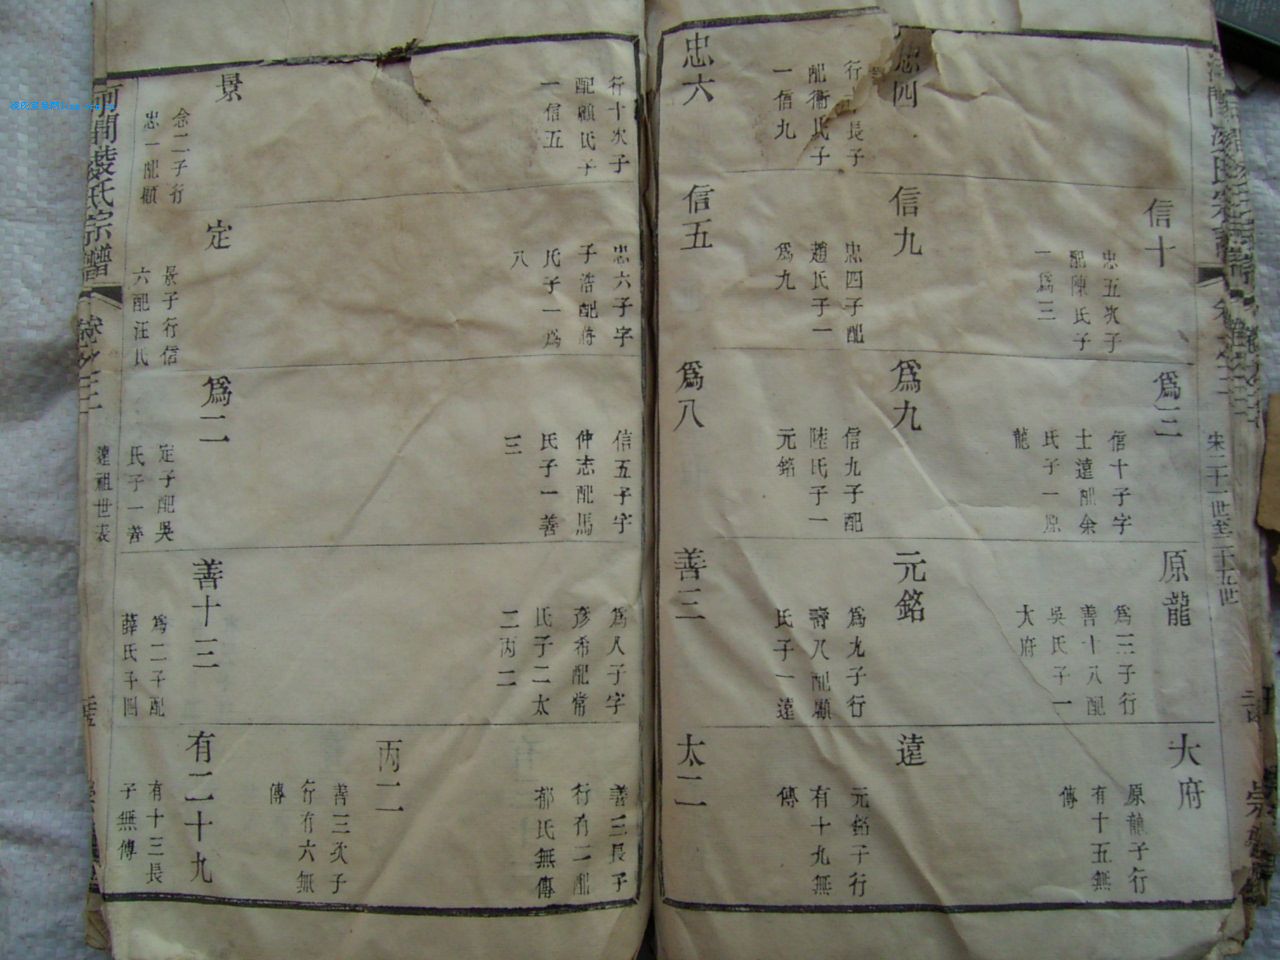 宋二十一世至二十五世
忠四
配衛氏子
一信九
忠六
信十
忠五次子
配陳氏子
一爲三
信九
忠四子配
趙氏子一
爲九
信五
爲三
信十子字
士達配余
氏子一原
龍
爲九
信九子配
陸氏子一
元銘
爲八
原龍
爲三子行
善十八配
吳氏子一
大府
元銘
爲九子行
壽八配顧
氏子一遠
善三
大府
原龍子行
有十五無
傳
遠
元銘子行
有十九無
傳
太二
行十次子
配顧氏子
一信五
景
念二子行
忠一配顧
忠六子字
子浩配蔣
氏子一爲
八
定
景子行信
六配汪氏
信五子字
仲志配馬
氏子一善
三
爲二
定子配吳
氏子一善
爲八子字
彥希配常
氏子二太
二丙二
善十三
爲二子配
薛氏子四
善三長子
行有二配
郁氏無傳
丙二
善三次子
行有六無
傳
有二十九
有十三長
子無傳
河間裴氏宗譜
卷之三
遠祖世表